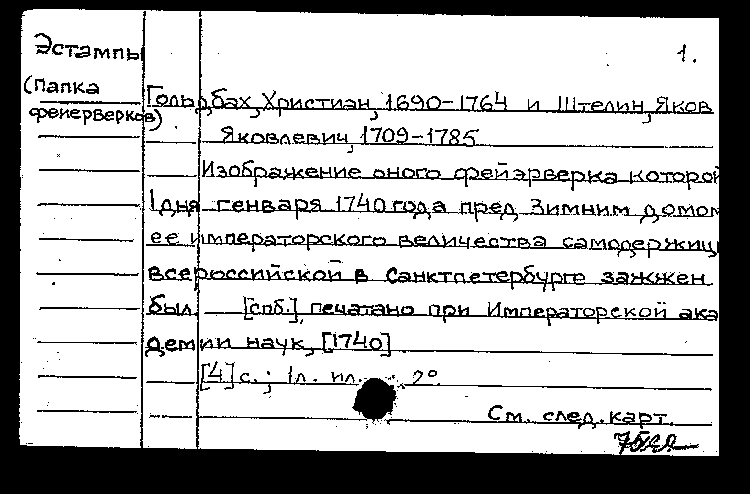 Эстампы
1.
(Папка
фейерверков)
Гольдбах, Христиан, 1690-1764 и Штелин, Яков
Яковлевич, 1709-1785
Изображение оного фейэрверка которой
1 дня генваря 1740 года пред Зимним домом
ее императорского величества самодержиц
всероссийской в Санктпетербурге зажжен
был. [спб.], печатано при Императорской ака
демии наук, [1740]
[4] с.; 1л. ил. 2°.
См. след. карт.